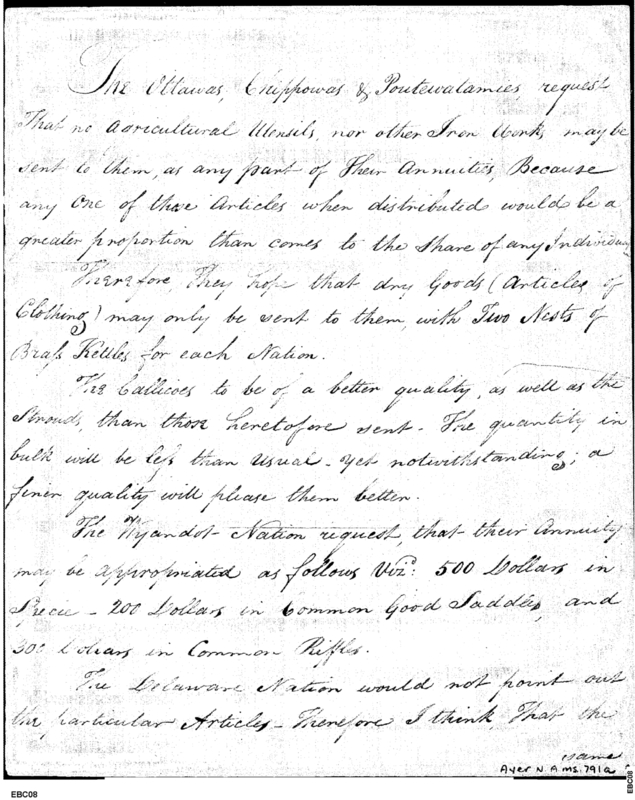 The Ottawas, Chippowas & Poutewatamies request
That no Agricultural Utensils, nor other Iron Works, may be
sent to them, as any part of Their Annuities, Because
any One of those Articles when distributed would be a
greater proportion than comes to the Share of any Individual
Therefore, They hope that dry Goods (Articles of
Clothing) may only be sent to them, with Two Nests of
Brass Kettles for each Nation.
The Callicoes to be of a better quality, as well as the
Strouds, than those heretofore sent - The quantity in
bulk will be less than Usual - yet notwithstanding; a
finer quality will please them better.
The Wyandot Nation request, that their Annuity
may be appropriated as follows Vizt: 500 Dollars in
Specie - 200 Dollars in Common Good Saddles, and
300 Dollars in Common Riffles.
The Delaware Nation would not point out
the particular Articles - Therefore I think, That the
same
Ayer N A ms. 791a
EBC08
EBC08